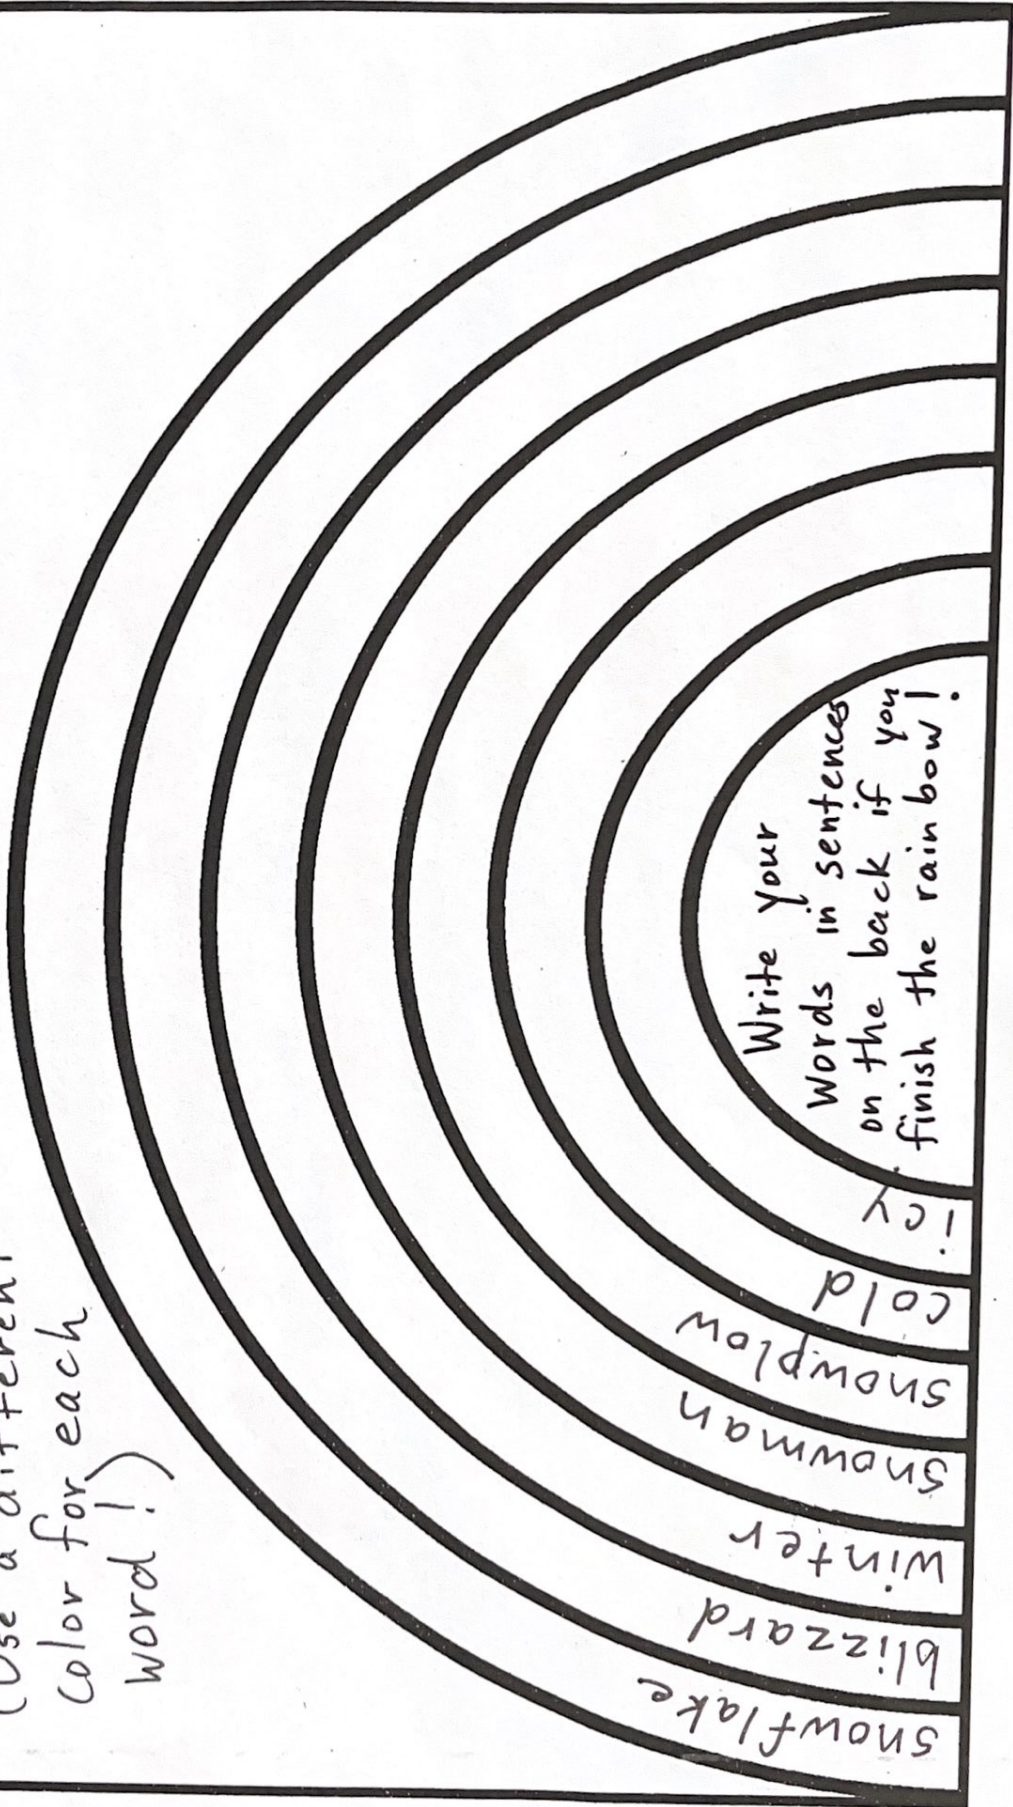 (Use a different
color for each
word!)
snowflake
blizzard
winter
snowman
snowplow
cold
icy
Write your
words in sentences
on the back if you
finish the rainbow!